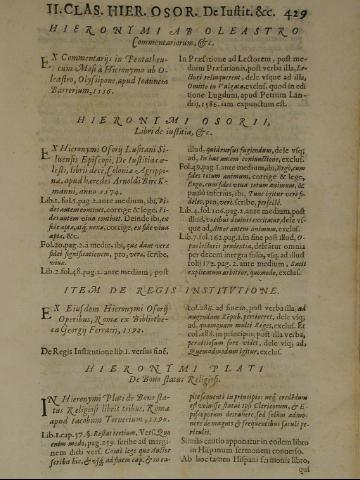 II. CLAS. HIER. OSOR. De Iustit. &c. 429
HIERONYMI AB OLEASTRO
Commentariorum, &c.
EX Commentarijs in Pentatheu-
cum Mosi à Hieronymo ab O-
leastro, Olysipone, apud Ioannem
Barrerium, 1556.
In Præfatione ad Lectorem, post me-
dium Præfationis, post verba illa, Le-
ctori relinquerent, dele vsque ad illa,
Omitto in Vulgata, exclus. quod in edi-
tione Lugdun. apud Petrum Lan-
drij, 1586. iam expunctum est.
HIERONIMI OSORII,
Libri de iustitia, &c.
EX Hieronymo Osorij Lusitani Si-
luensis Episcopi, De Iustitia cæ-
lesti, libris decē, Coloniæ Agrippi-
næ, apud hæredes Arnoldi Birck-
manni, anno 1574.
Lib. 2. fol. 45. pag. 2. ante medium, ibi, Fi-
des autem emittet, corrige & lege, Fi-
des autem viua emittet. Deinde ibi, ex
fide
Fol. 20. pag. 2. à medio, ibi, quæ dant verè
fidei significationem, pro, verè, scribe,
viuæ.
Lib. 2. fol. 48. pag. 2. ante medium, post
illud, fugiendum, dele vsq;
ad, In hac autem coniunctione, exclus.
Fol. 49. pag. 1. ante medium, ibi, Ergo, cum
fides totum animum, corrige & lege,
Ergo, cum fides viua totum animum, &
paulò inferiùs, ibi, Tunc igitur verè fi-
deles, pro, verè, scribe, perfectè.
Lib. 4. fol. 106. pag. 2. ante medium, post
illud, dele vs-
que ad, exclus.
Lib. 7. fol. 162. pag. 2. in fine post illud,
deleatur omnia
per decem integra folia, vsq; ad illud
folij 172. pag. 2. ante medium,
explicatum arbitror, quomodo, exclus.
ITEM DE REGIS INSTITVTIONE.
EX Eiusdem Hieronymi Osorij
Operibus, Romæ ex Bibliothe-
ca Georgij Ferrarij, 1592.
De Regis Institutione lib. 1. versus finē.
col. 285. ad finem, post verba illa, ad
augendam Reipub. pertineret, dele vsq;
ad, quamquam multi Reges, exclus. Et
col. 286. in principio, post illa verba,
perditissimum fore vidit, dele vsq; ad,
Quemadmodum igitur, exclus.
HIERONYMI PLATI
De Bono status Religiosi.
IN Hieronymi Plati de Bono sta-
tus Religiosi libris tribus, Romæ
apud Iacobum Tornerium, 1590.
Lib. 1. cap. 37. §. Restat tertium, Vers. Quo
enim modo, pag. 259. scribe ad margi-
nem dicti vers. Caute lege quæ doctor
scribit hic, & vsq; ad finem cap. & so ca-
pite sequenti in principio: neq; credidium
est exclusisse statui ipsi Clericorum, & E-
piscoporum docuisse, sed solum admo-
nere de magnis & frequentibus sæculi pe-
riculis.
Similis cautio apponatur in eodem libro
in Hispanum sermonem conuerso.
Ab hoc tamen Hispani sermonis libro,
qui